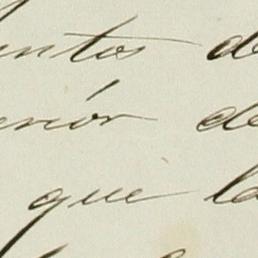 untos de
erior de
que la